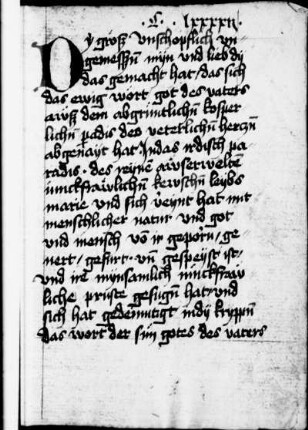 .C. lxxxxii
Dy groß vnschopflich vn
gemessen mÿn vnd lieb dy
das gemacht hat / das sich
das ewig wort got des vaters
auß dem abgrintlichn kosper
lichn padis des veterlichn herczn
abgenaÿt hat Indas irdisch pa
radis . des reÿnen auserwelten
iunckfraẅlichn keẅschn leÿbs
marie vnd sich veÿnt hat mit
menschlicher natur vnd got
vnd mensch võ ir geporn / ge
nert / gefurt . vn gespeÿst ist /
vnd ire mÿnsamlich iunckfraw
liche prüste gesugn hat / vnd
sich hat gedemutigt indÿ krippñ
das wort der sun gotes des vaters